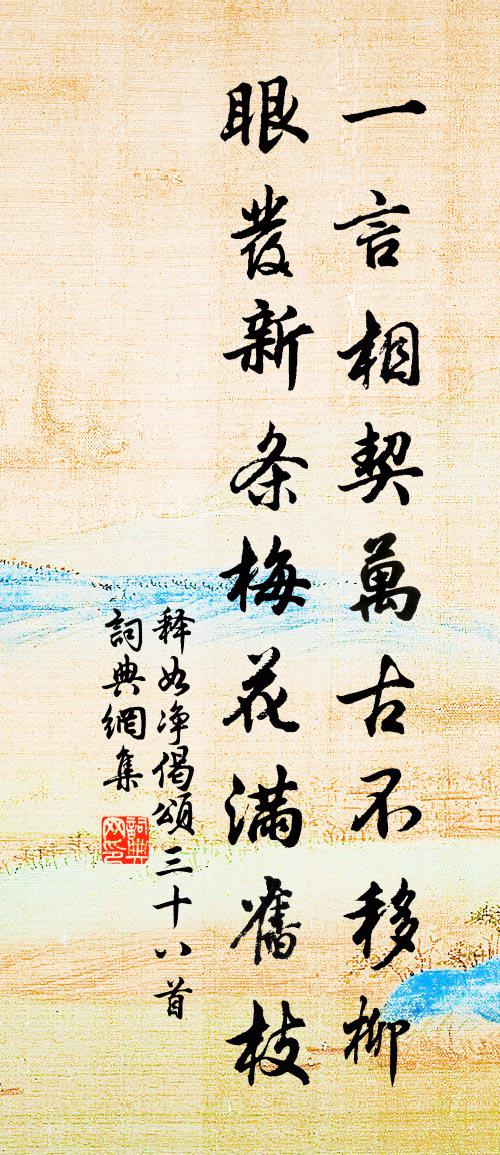 一言相契萬古不移柳
眼發新条梅花滿舊枝
释如净偈頌三十八首
詞典網集
詞典网印